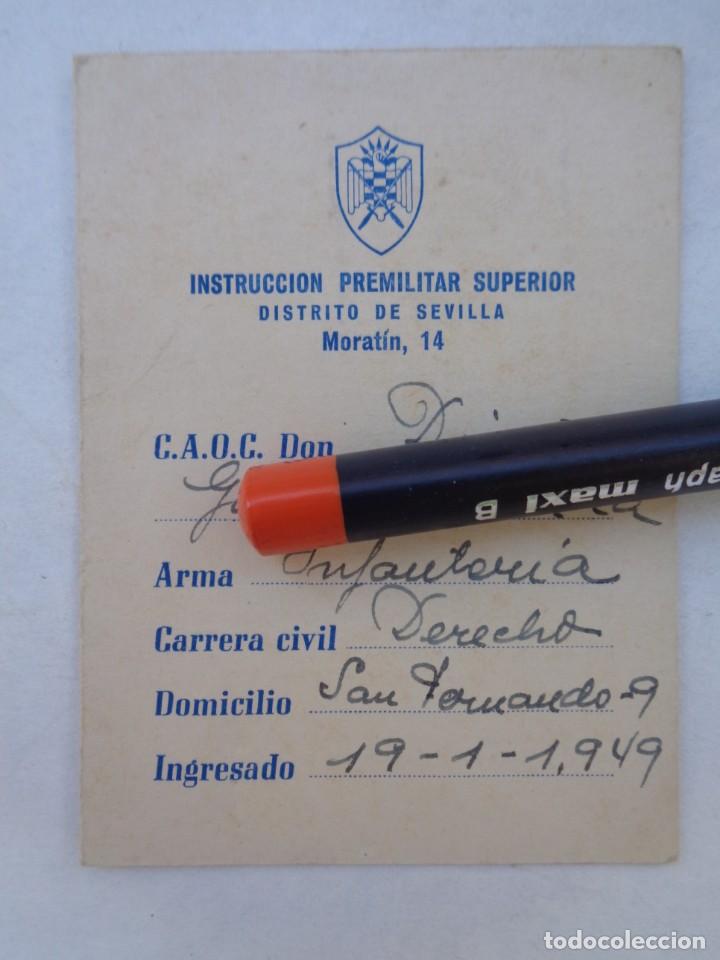 INSTRUCCION PREMILITAR SUPERIOR
DISTRITO DE SEVILLA
Moratín, 14
C.A.O.C. Don
aph maxi B
Arma Infantería
Carrera civil Derecho
Domicilio San Fernando-9
Ingresado 19-1-1,949
todocoleccion